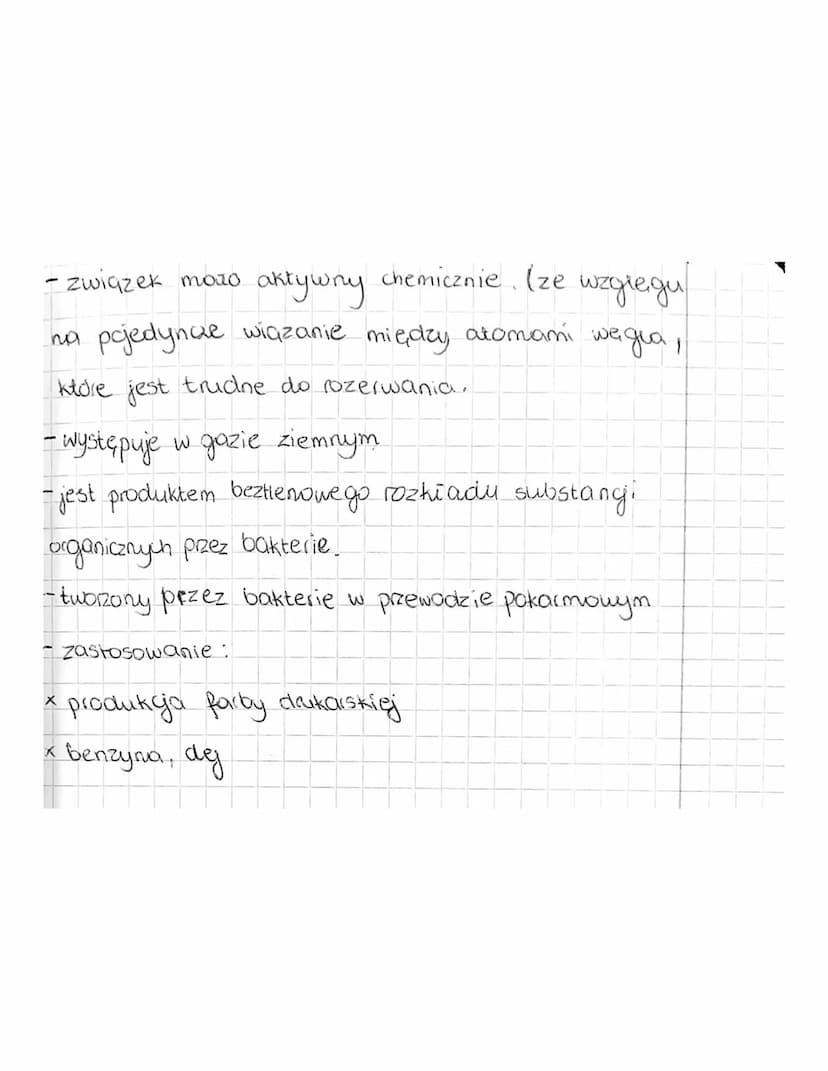 - związek mało aktywny chemicznie. (ze względu
na pojedyncze wiązanie między atomami węgla,
które jest trudne do rozerwania.
- występuje w gazie ziemnym
- jest produktem beztlenowego rozkładu substancji
organicznych przez bakterie.
- tworzony przez bakterie w przewodzie pokarmowym
- zastosowanie:
x produkcja farby drukarskiej
x benzyna, olej